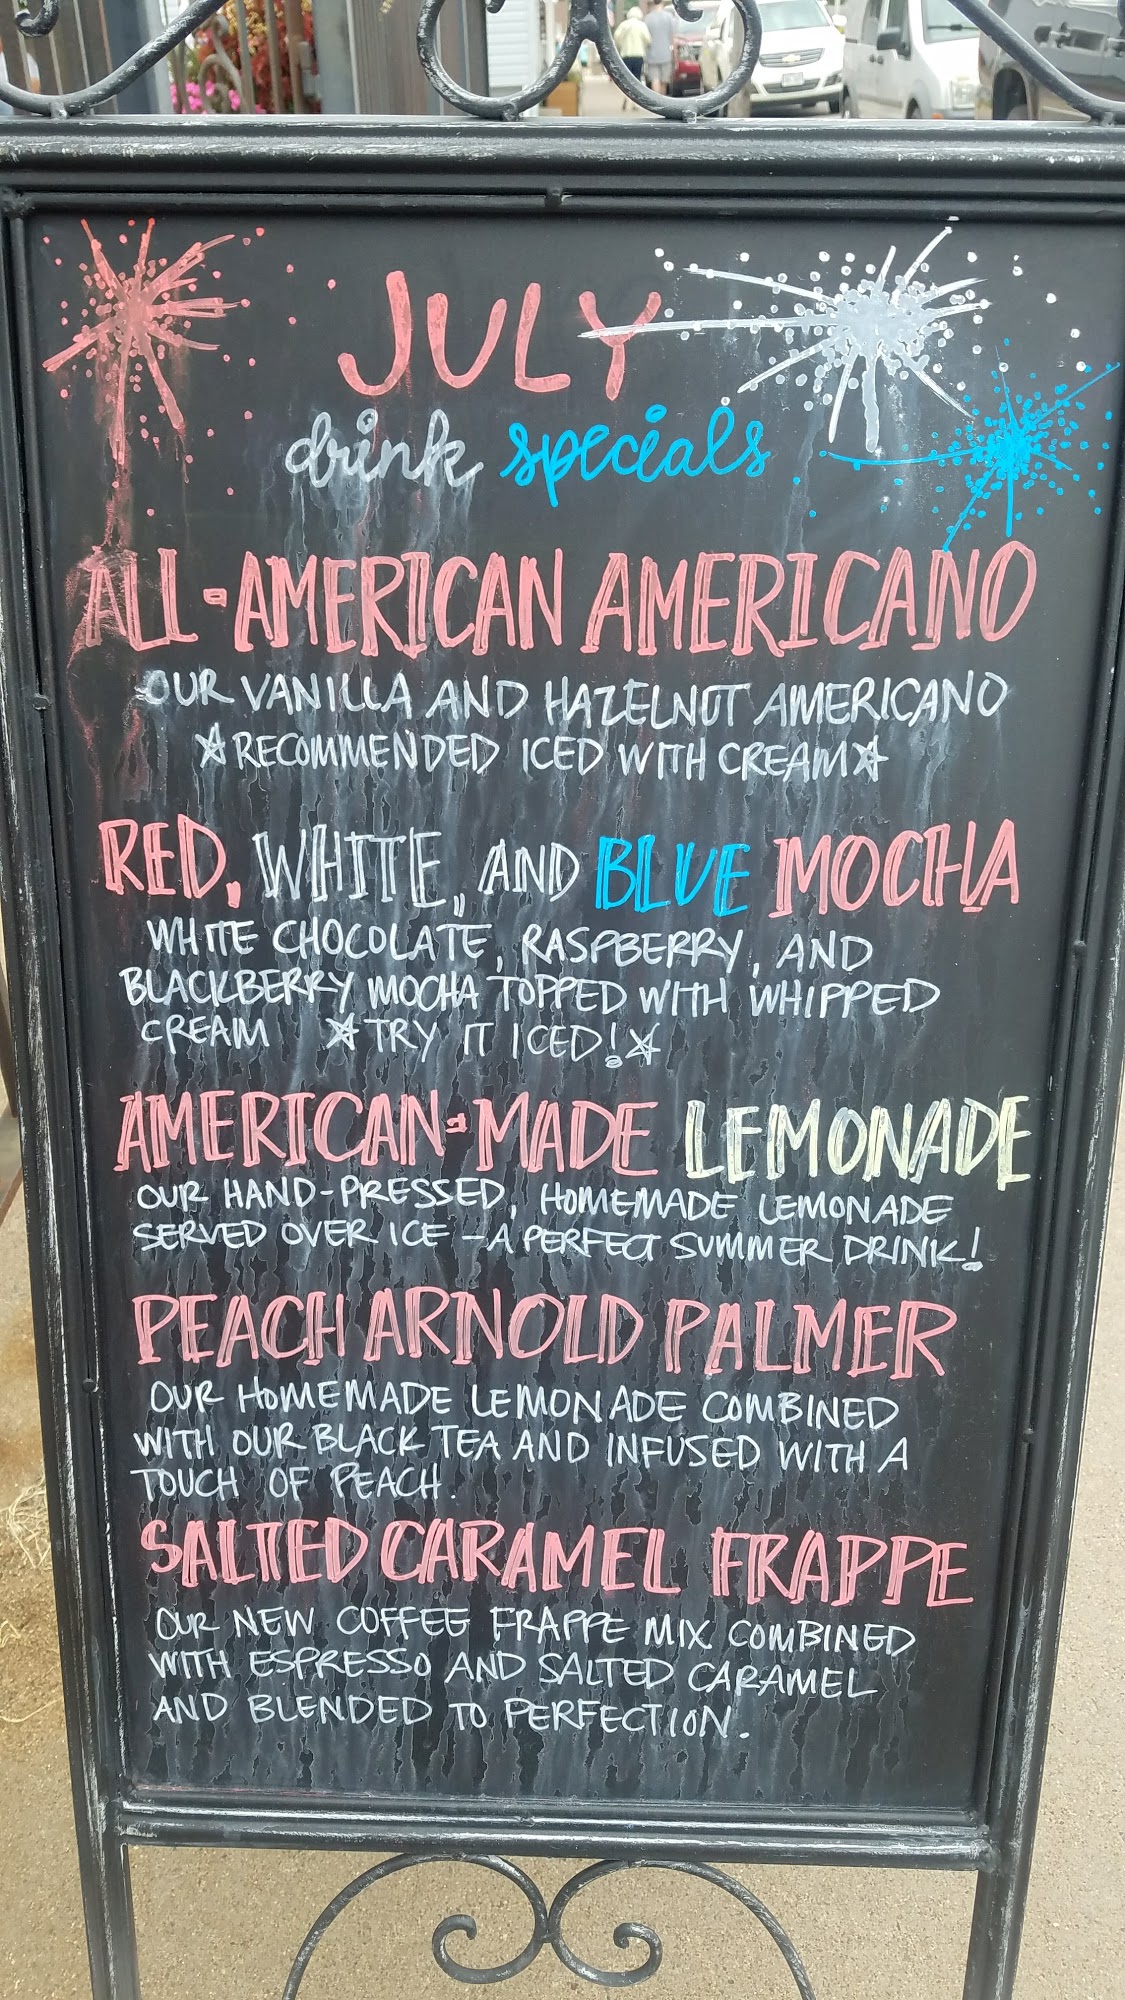 JULY
drink specials
ALL-AMERICAN AMERICANO
OUR VANILLA AND HAZELNUT AMERICANO
☆RECOMMENDED ICED WITH CREAM☆
RED, WHITE, AND BLUE MOCHA
WHITE CHOCOLATE, RASPBERRY, AND
BLACKBERRY MOCHA TOPPED WITH WHIPPED
CREAM ☆TRY IT ICED!☆
AMERICAN-MADE LEMONADE
OUR HAND-PRESSED, HOMEMADE LEMONADE
SERVED OVER ICE - A PERFECT SUMMER DRINK!
PEACH ARNOLD PALMER
OUR HOMEMADE LEMONADE COMBINED
WITH OUR BLACK TEA AND INFUSED WITH A
TOUCH OF PEACH.
SALTED CARAMEL FRAPPE
OUR NEW COFFEE FRAPPE MIX COMBINED
WITH ESPRESSO AND SALTED CARAMEL
AND BLENDED TO PERFECTION.